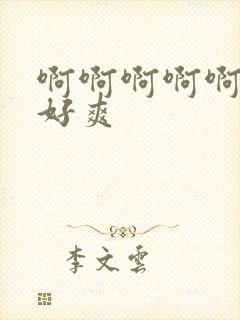 啊啊啊啊啊
好爽
李文雲